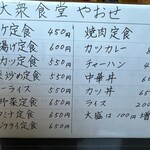 大衆食堂 やおせ
ケ定食 450円
揚げ定食 600円
カツ定食 550円
と炒め定食 550円
ーライス 550円
野菜定食 600円
タミナ定食 650円
ライ定食 650円
焼肉定食
カツカレー
チャーハン
中華丼 6
カツ丼 65
ライス 200
大盛は100円増